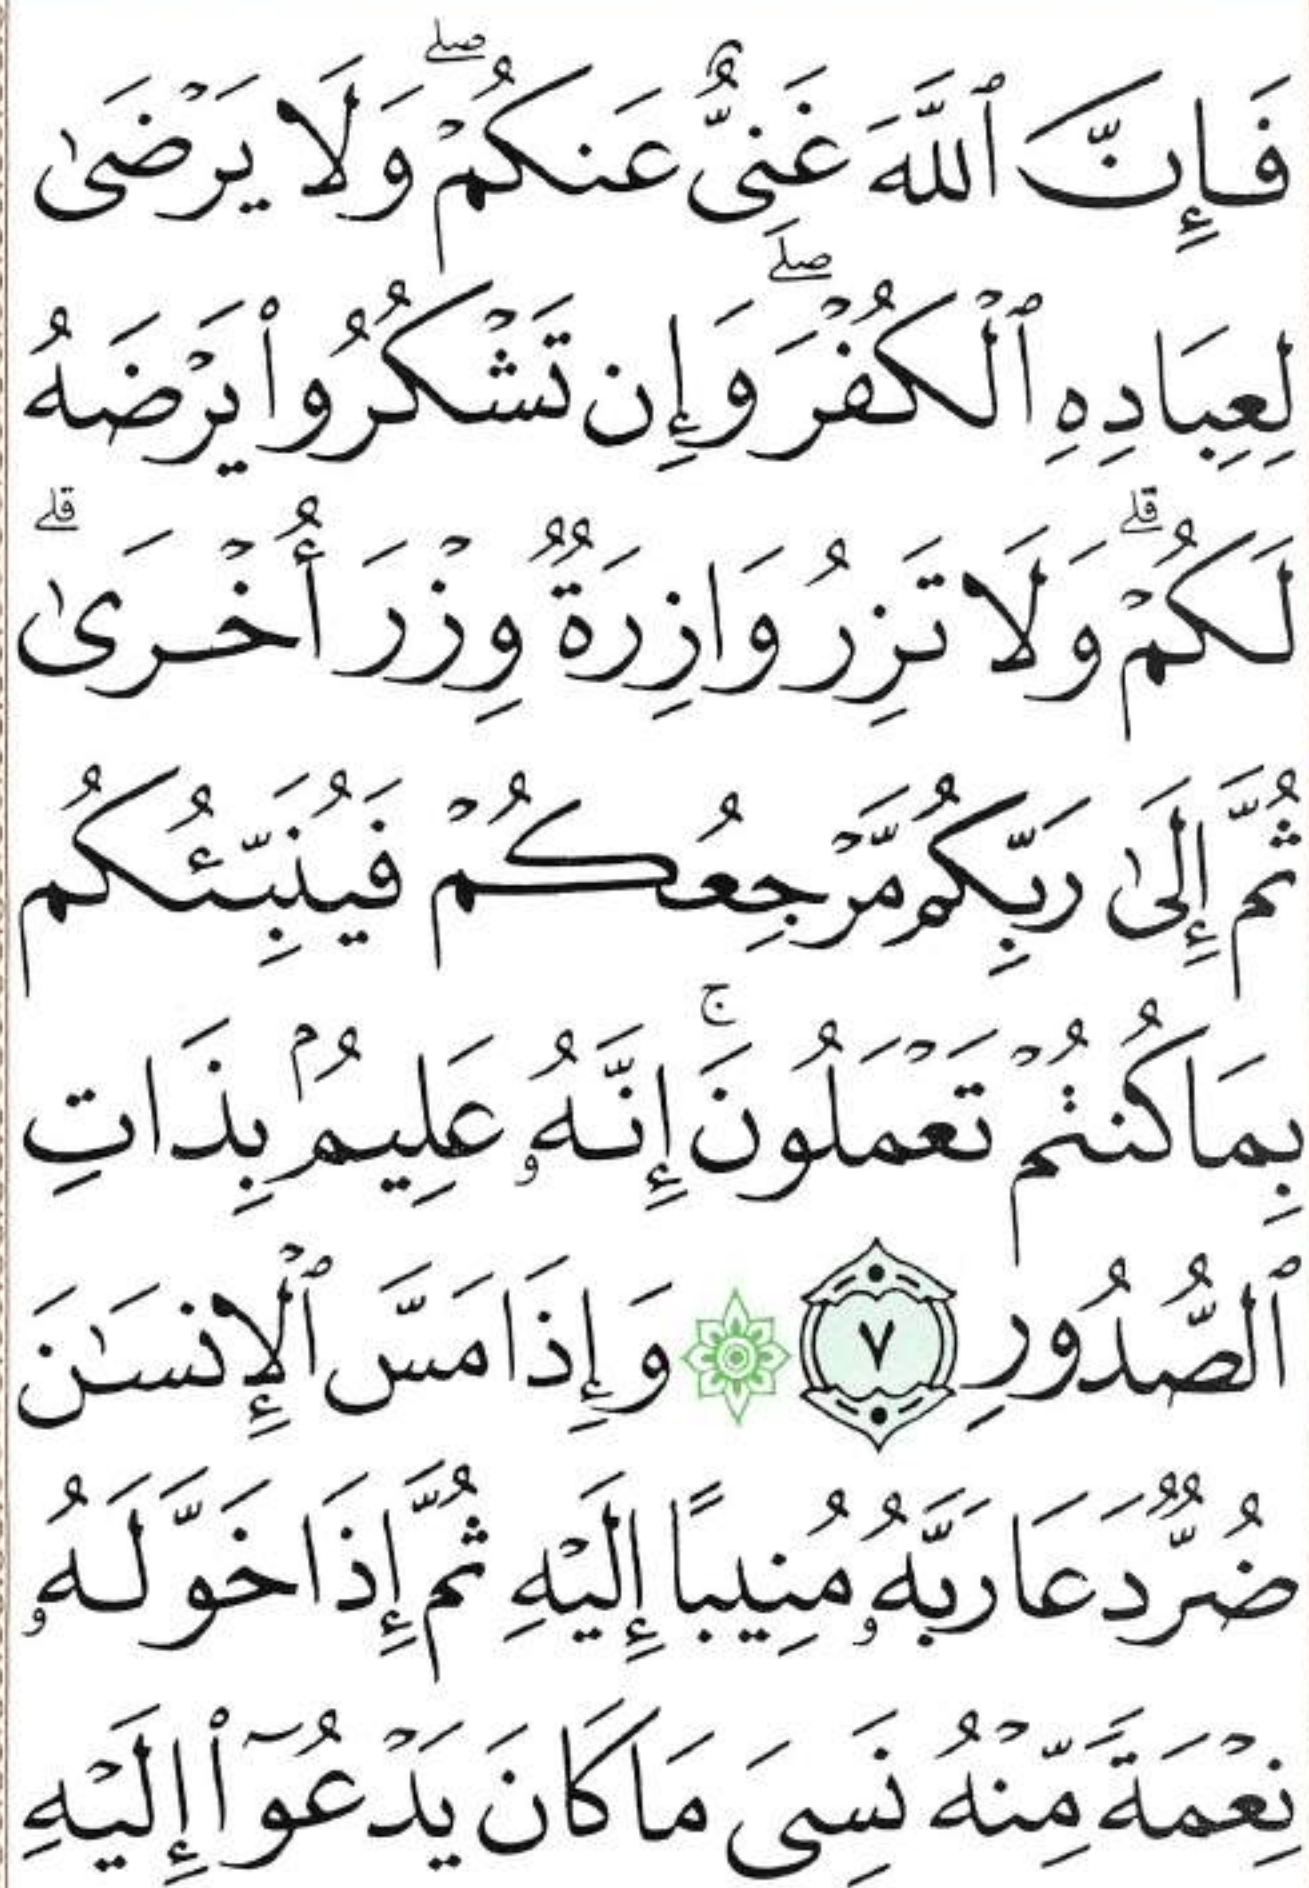 فَإِنَّ ٱللَّهَ غَنِىٌّ عَنكُمْ ۖ وَلَا يَرْضَىٰ
لِعِبَادِهِ ٱلْكُفْرَ ۖ وَإِن تَشْكُرُوا۟ يَرْضَهُ
لَكُمْ ۗ وَلَا تَزِرُ وَازِرَةٌ وِزْرَ أُخْرَىٰ ۗ
ثُمَّ إِلَىٰ رَبِّكُم مَّرْجِعُكُمْ فَيُنَبِّئُكُم
بِمَا كُنتُمْ تَعْمَلُونَ ۚ إِنَّهُۥ عَلِيمٌۢ بِذَاتِ
ٱلصُّدُورِ ٧ ۞ وَإِذَا مَسَّ ٱلْإِنسَـٰنَ
ضُرٌّ دَعَا رَبَّهُۥ مُنِيبًا إِلَيْهِ ثُمَّ إِذَا خَوَّلَهُۥ
نِعْمَةً مِّنْهُ نَسِىَ مَا كَانَ يَدْعُوٓا۟ إِلَيْهِ